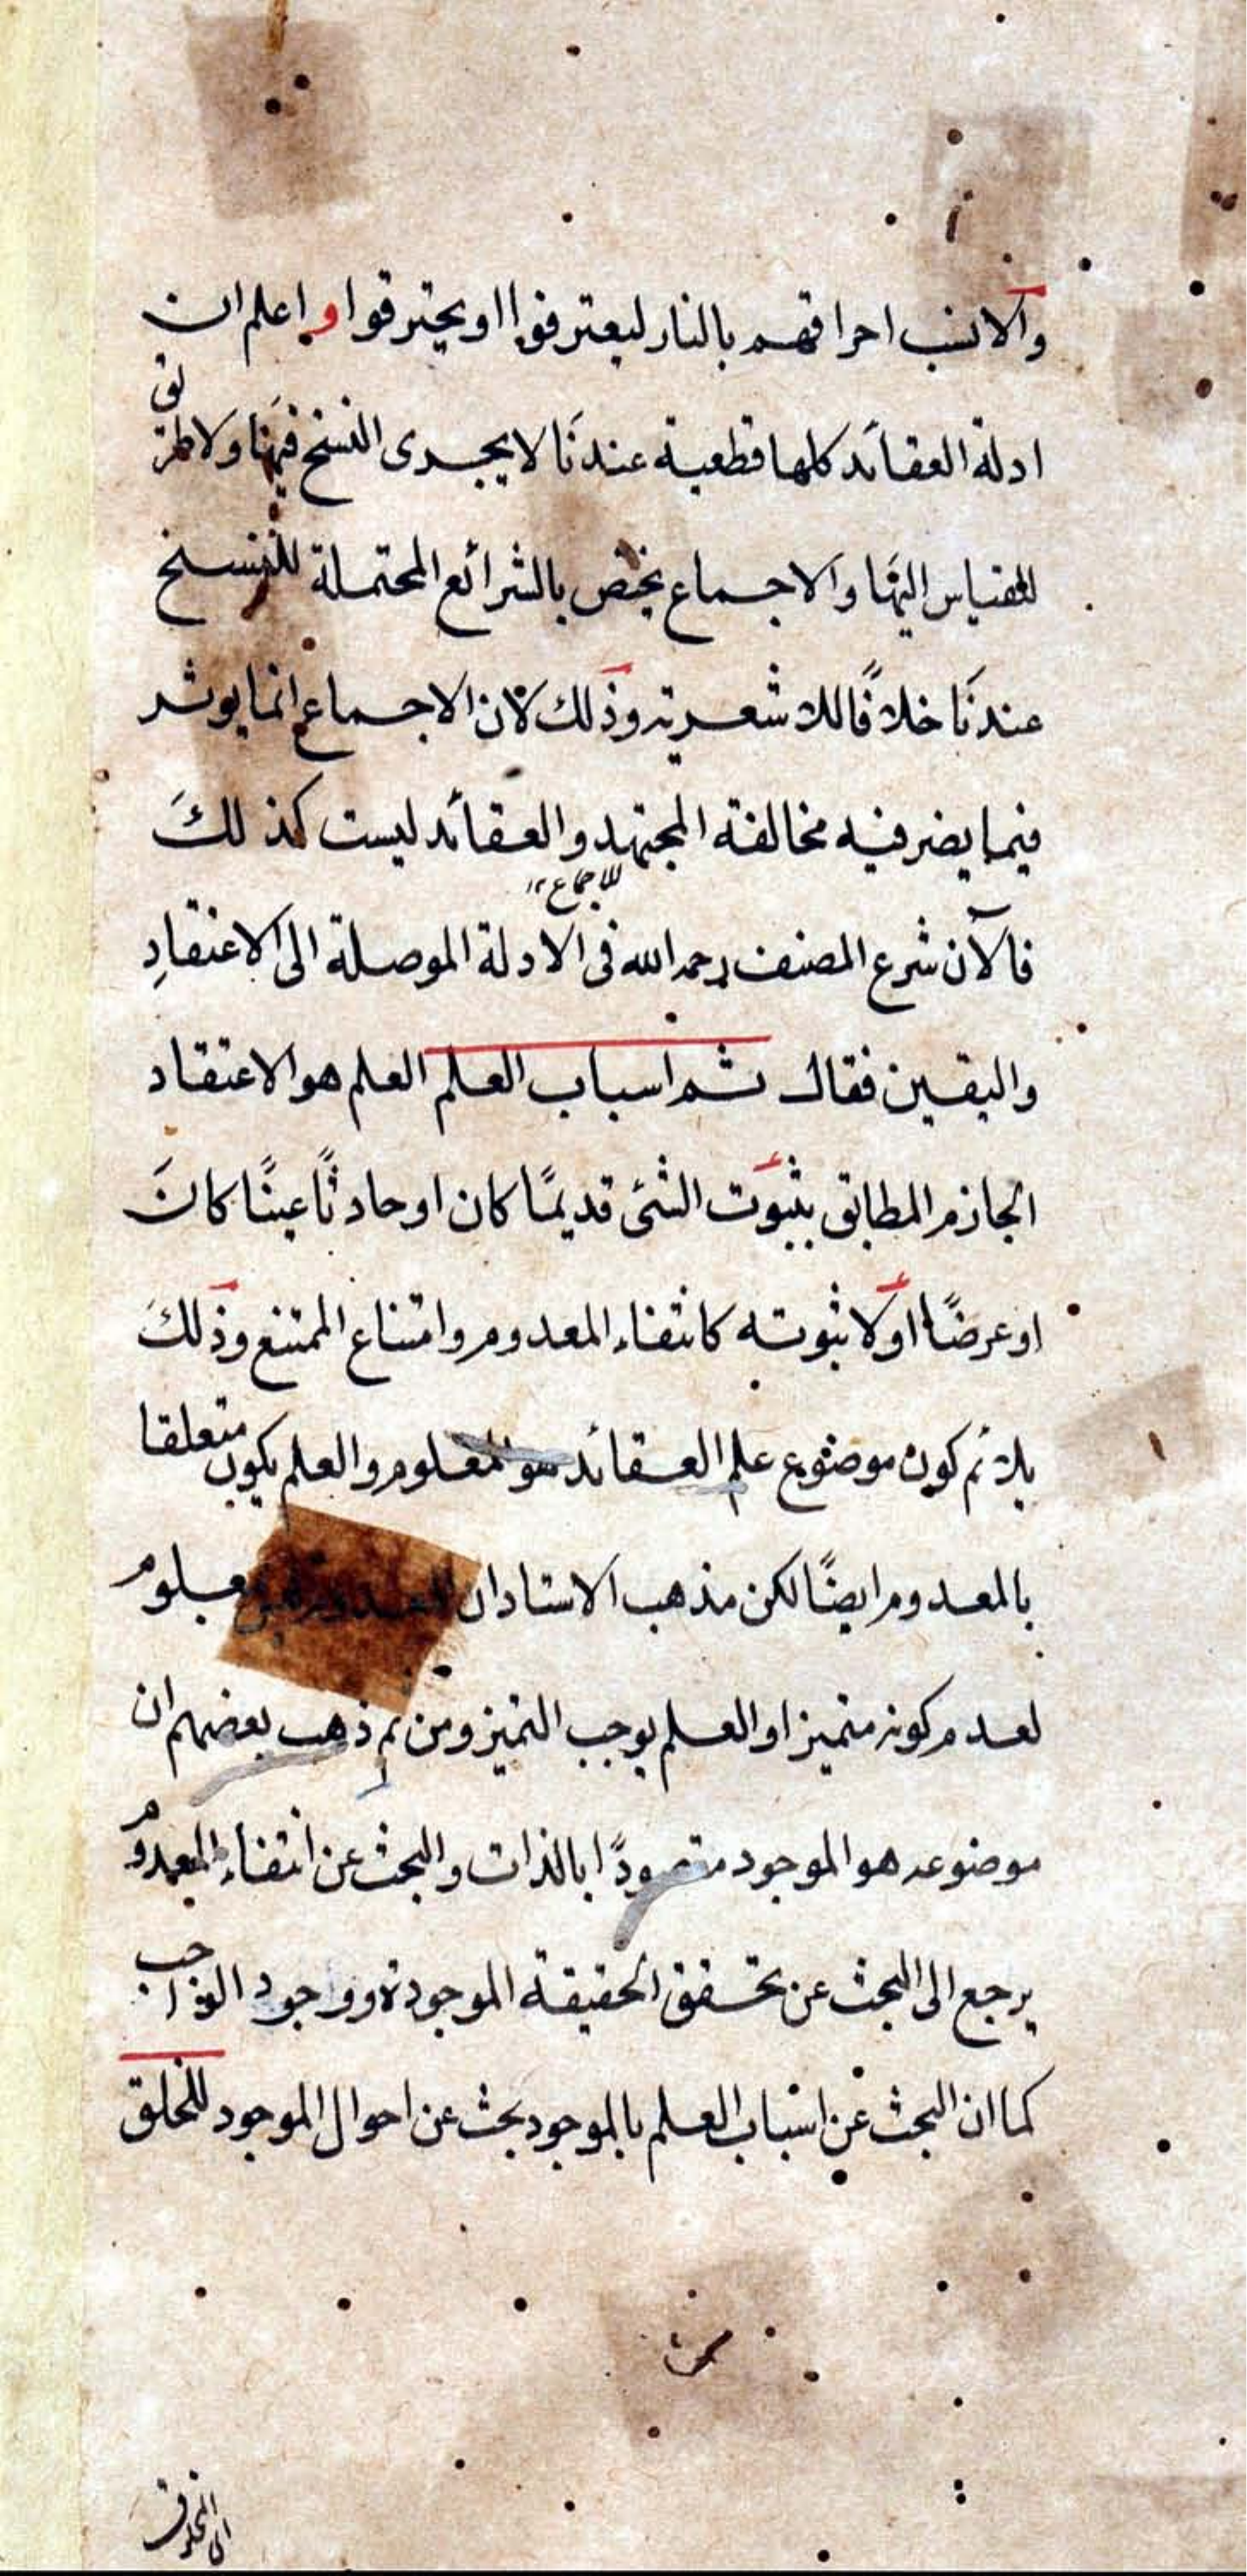 والانسب احراقهم بالنار ليعترفوا او يحترقوا واعلم ان
ادلة العقائد كلها قطعية عندنا لا يجرى النسخ فيها ولا طريق
للقياس اليها والاجماع يختص بالشرائع المحتملة للنسخ
عندنا خلافًا للاشعرية وذلك لان الاجماع انما يوثر
فيما يضر فيه مخالفة المجتهد والعقائد ليست كذلك
للاجماع ١٢
فالآن شرع المصنف رحمه الله فى الادلة الموصلة الى الاعتقادِ
واليقين فقال ثم اسباب العلم العلم هو الاعتقاد
الجازم المطابق بثبوت الشئ قديمًا كان او حادثًا عينًا كانَ
او عرضًا او لا ثبوته كانتفاء المعدوم وامتناع الممتنع وذلكَ
يلائم كون موضوع علم العقائد هو المعلوم والعلم يكون متعلقا
بالمعدوم ايضًا لكن مذهب الاستاد ان المعدوم ليس بمعلوم
لعدم كونه متميزا والعلم يوجب التميز ومن ثم ذهب بعضهم ان
موضوعه هو الموجود مقصودًا بالذات والبحث عن انتفاء المعدوم
يرجع الى البحث عن تحقق الحقيقة الموجودة ووجود الواجب
كما ان البحث عن اسباب العلم بالموجود بحث عن احوال الموجود للخلق
اى المخلوق